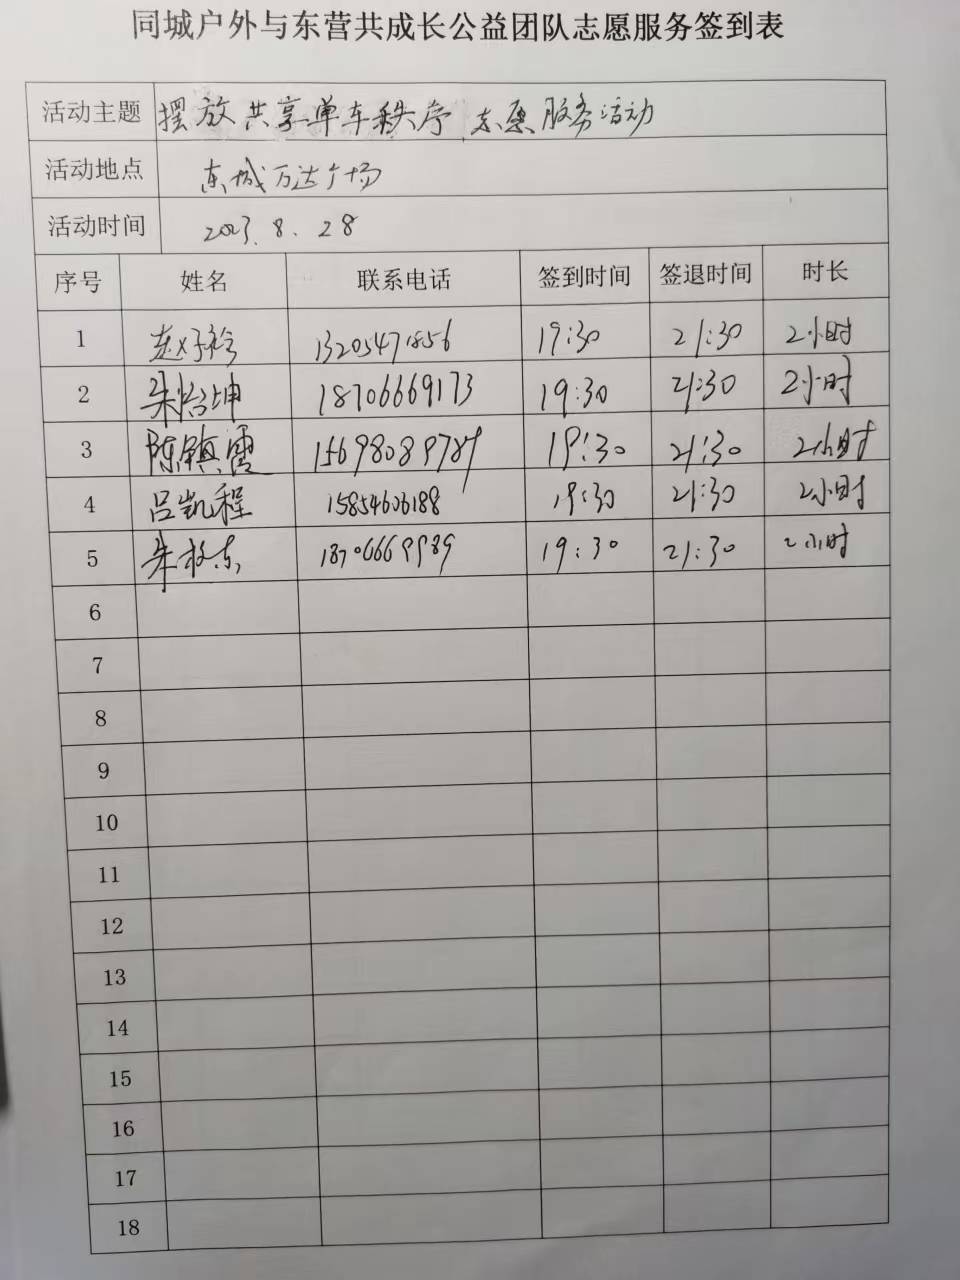 同城户外与东营共成长公益团队志愿服务签到表
活动主题 摆放共享单车秩序志愿服务活动
活动地点 东城万达广场
活动时间 2023.8.28
序号 姓名 联系电话 签到时间 签退时间 时长
1 赵子衿 13205471856 19:30 21:30 2小时
2 朱怡坤 18706669173 19:30 21:30 2小时
3 陈镇霞 15698089789 19:30 21:30 2小时
4 吕凯程 15854606188 19:30 21:30 2小时
5 朱 18706669989 19:30 21:30 2小时
6
7
8
9
10
11
12
13
14
15
16
17
18